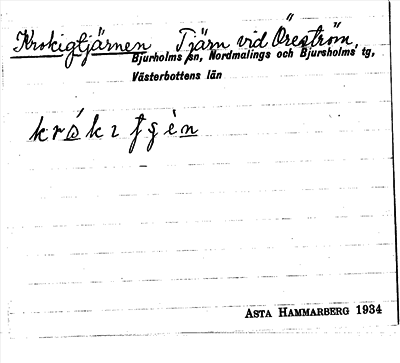 Krokigtjärnen Tjärn vid Öreström,
Bjurholms sn, Nordmalings och Bjursholms tg,
Västerbottens län
ASTA HAMMARBERG 1934